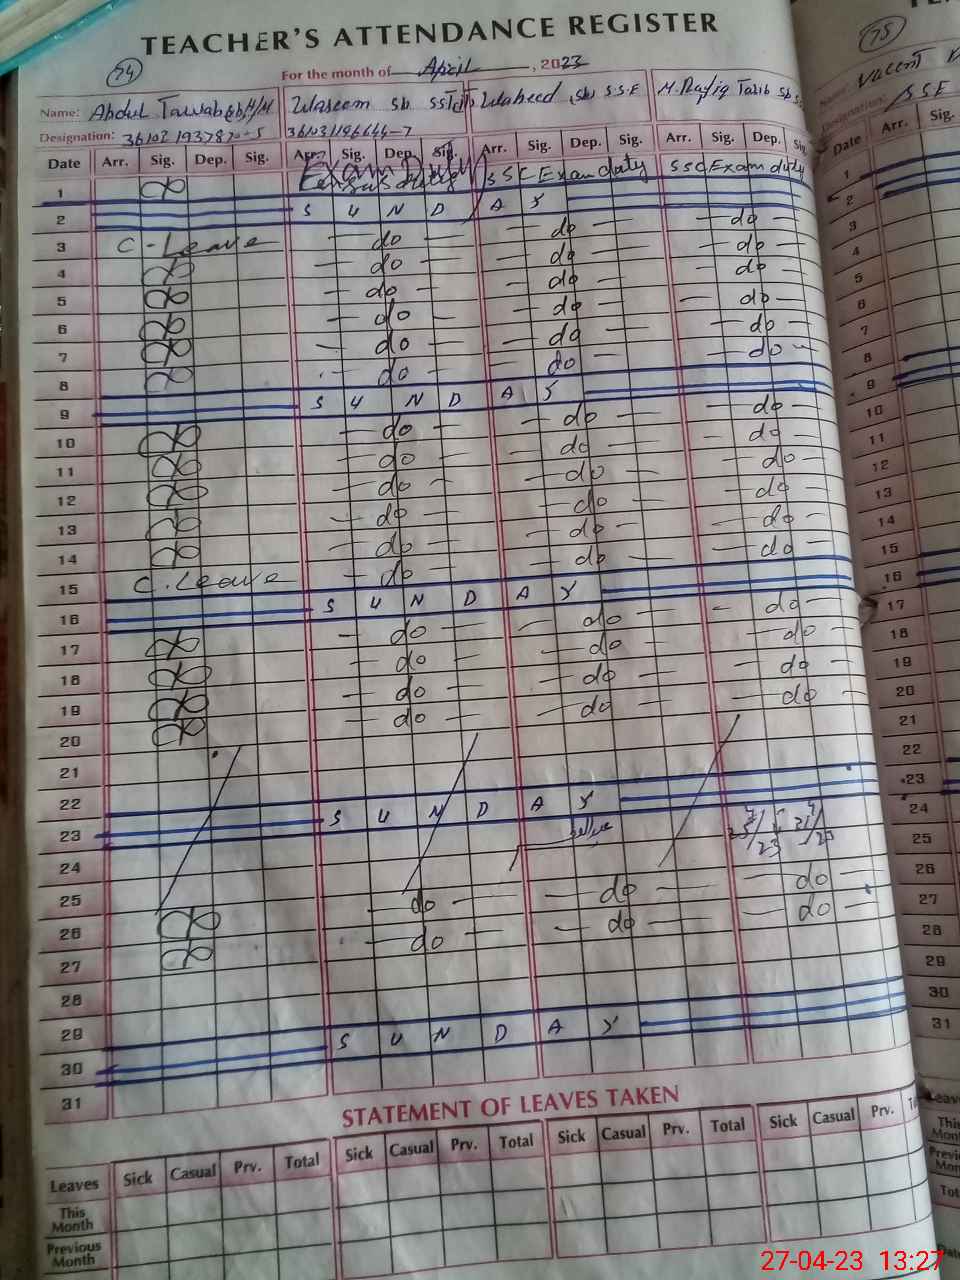 TEACHER'S ATTENDANCE REGISTER
74
For the month of April, 2023
Name: Abdul Tawab H/M Waseem sb SST Waheed sb S.S.E M. Rafiq Tasib sb
Designation: 36102 1937870-5 36103
Date Arr. Sig. Dep. Sig. Arr. Sig. Dep. Sig. Arr. Sig. Dep. Sig. Arr. Sig. Dep. Sig.
1 Exam Duty SSC Exam duty SSC Exam duty
2 S U N D A Y
3 C-Leave do do do
4 do do do
5 do do do
6 do do do
7 do do do
8 do do do
9 S U N D A Y
10 do do do
11 do do do
12 do do do
13 do do do
14 do do do
15 C.Leave do do do
16 S U N D A Y
17 do do do
18 do do do
19 do do do
20 do do do
21
22
23 S U N D A Y
24
25
26 do do do
27 do do do
28
29
30 S U N D A Y
31
STATEMENT OF LEAVES TAKEN
Leaves Sick Casual Prv. Total Sick Casual Prv. Total Sick Casual Prv. Total Sick Casual Prv.
This Month
Previous Month
75
Name:
Designation: SSE
Date Arr. Sig.
1
2
3
4
5
6
7
8
9
10
11
12
13
14
15
16
17
18
19
20
21
22
23
24
25
26
27
28
29
30
31
27-04-23 13:27